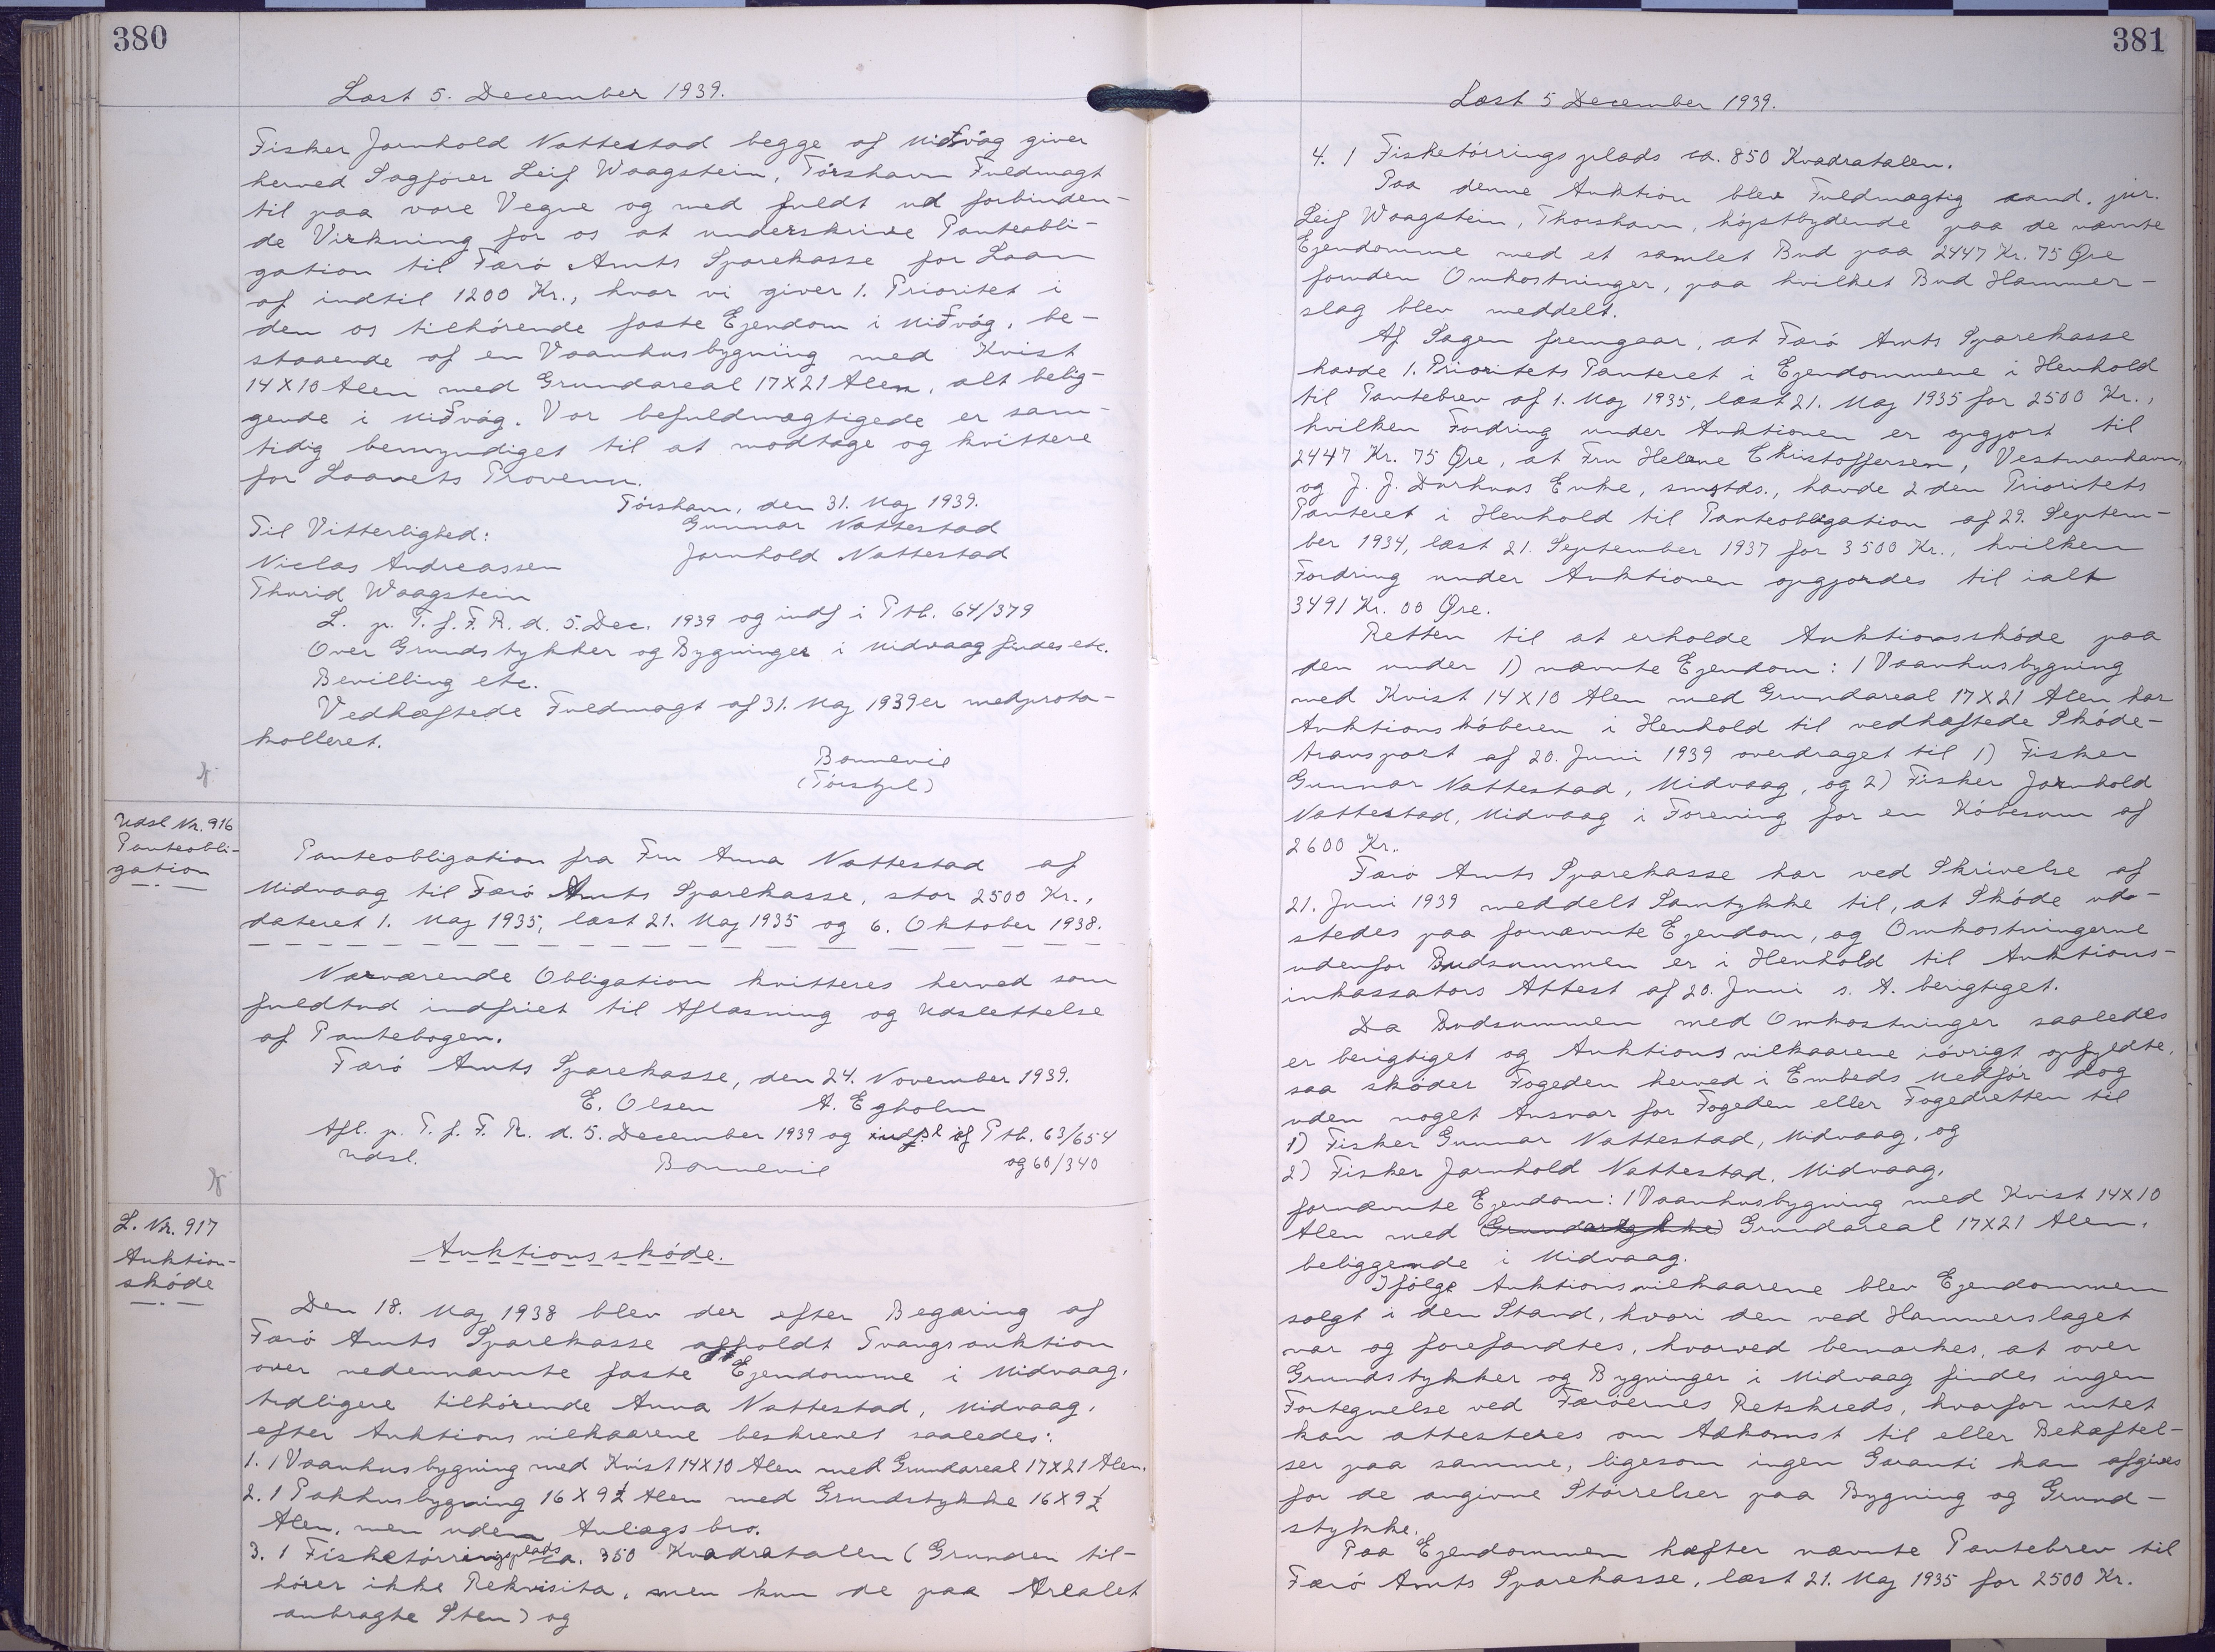 380
Læst 5. December 1939.
Fisker Jarnhold Nattestad begge af Miðvág giver
herved Sagfører Leif Waagstein, Tórshavn Fuldmagt
til paa vore Vegne og med fuldt ud forbinden-
de Virkning for os at underskrive Panteobli-
gation til Færö Amts Sparekasse for Laan
af indtil 1200 Kr., hvor vi giver 1. Prioritet i
den os tilhörende faste Ejendom i Miðvág, be-
staaende af en Vaanhusbygning med Kvist
14X10 Alen med Grundareal 17X21 Alen, alt belig-
gende i Miðvág. Vor befuldmægtigede er sam-
tidig bemyndiget til at modtage og kvittere
for Laanets Provenu.
Tórshavn, den 31. Maj 1939.
Til Vitterlighed: Gunnar Nattestad
Niclas Andreassen Jarnhold Nattestad
Thurid Waagstein
L. p. T. f. F. R. d. 5. Dec. 1939 og indf i Ptb. 64/379
Over Grundstykker og Bygninger i Midvaag findes etc.
Bevilling etc.
Vedhæftede Fuldmagt af 31. Maj 1939 er medproto-
kolleret.
Bonnevie
(Tórsgjl)
Udsl Nr. 916
Panteobli-
gation
Panteobligation fra Fru Anna Nattestad af
Midvaag til Færö Amts Sparekasse, stor 2500 Kr.,
dateret 1. Maj 1935, læst 21. Maj 1935 og 6. Oktober 1938.
Nærværende Obligation kvitteres herved som
fuldtud indfriet til Aflæsning og Udslettelse
af Pantebogen.
Færö Amts Sparekasse, den 24. November 1939.
E. Olsen A. Egholm
Afl. p. T. f. F. R. d. 5. December 1939 og udsl af Ptb. 63/654
Udsl. Bonnevie og 60/340
L. Nr. 917
Auktion-
sköde
Auktionssköde.
Den 18. Maj 1938 blev der efter Begæring af
Færö Amts Sparekasse afholdt Tvangsauktion
over nedennævnte faste Ejendomme i Midvaag,
tidligere tilhörende Anna Nattestad, Midvaag,
efter Auktionsvilkaarene beskrevet saaledes:
1. 1 Vaanhusbygning med Kvist 14X10 Alen med Grundareal 17X21 Alen.
2. 1 Pakhusbygning 16X9½ Alen med Grundstykke 16X9½
Alen, men uden Anlægsbro.
3. 1 Fisketörringsplads ca. 350 Kvadratalen (Grunden til-
hörer ikke Rekvisita, men kun de paa Arealet
anbragte Sten) og
381
Læst 5 December 1939.
4. 1 Fisketörringsplads ca. 850 Kvadratalen.
Paa denne Auktion blev Fuldmægtig cand. jur.
Leif Waagstein, Thorshavn, höjstbydende paa de nævnte
Ejendomme med et samlet Bud paa 2447 Kr. 75 Øre
foruden Omkostninger, paa hvilket Bud Hammer-
slag blev meddelt.
Af Sagen fremgaar, at Færö Amts Sparekasse
havde 1. Prioritets Panteret i Ejendommene i Henhold
til Pantebrev af 1. Maj 1935, læst 21. Maj 1935 for 2500 Kr.,
hvilken Fordring under Auktionen er opgjort til
2447 Kr. 75 Øre, at Fru Helene Christoffersen, Vestmanhavn,
og J. J. Durhuus Enke, smstds., havde 2den Prioritets
Panteret i Henhold til Panteobligation af 29. Septem-
ber 1934, læst 21. September 1937 for 3500 Kr., hvilken
Fordring under Auktionen opgjordes til ialt
3491 Kr. 00 Øre.
Retten til at erholde Auktionssköde paa
den under 1) nævnte Ejendom: 1 Vaanhusbygning
med Kvist 14X10 Alen med Grundareal 17X21 Alen har
Auktionsköberen i Henhold til vedhæftede Sköde-
transport af 20. Juni 1939 overdraget til 1) Fisker
Gunnar Nattestad, Midvaag, og 2) Fisker Jarnhold
Nattestad, Midvaag i Forening for en Köbesum af
2600 Kr..
Færö Amts Sparekasse har ved Skrivelse af
21. Juni 1939 meddelt Samtykke til, at Sköde ud-
stedes paa fornævnte Ejendom, og Omkostningerne
udenfor Budsummen er i Henhold til Auktions-
inkassators Attest af 20. Juni s. A. berigtiget.
Da Budsummen med Omkostninger saaledes
er berigtiget og Auktionsvilkaarene iövrigt opfyldte,
saa sköder Fogeden herved i Embeds Medför dog
uden noget Ansvar for Fogeden eller Fogedretten til
1) Fisker Gunnar Nattestad, Midvaag, og
2) Fisker Jarnhold Nattestad, Midvaag,
fornævnte Ejendom: 1 Vaanhusbygning med Kvist 14X10
Alen med Grundstykke Grundareal 17X21 Alen,
beliggende i Midvaag.
Ifölge Auktionsvilkaarene blev Ejendommen
solgt i den Stand, hvori den ved Hammerslaget
var og forefandtes, hvorved bemærkes, at over
Grundstykker og Bygninger i Midvaag findes ingen
Fortegnelse ved Færöernes Retskreds, hvorfor intet
kan attesteres om Adkomst til eller Behæftel-
ser paa samme, ligesom ingen Garanti kan afgives
for de angivne Störrelser paa Bygning og Grund-
stykke.
Paa Ejendommen hæfter nævnte Pantebrev til
Færö Amts Sparekasse, læst 21. Maj 1935 for 2500 Kr.